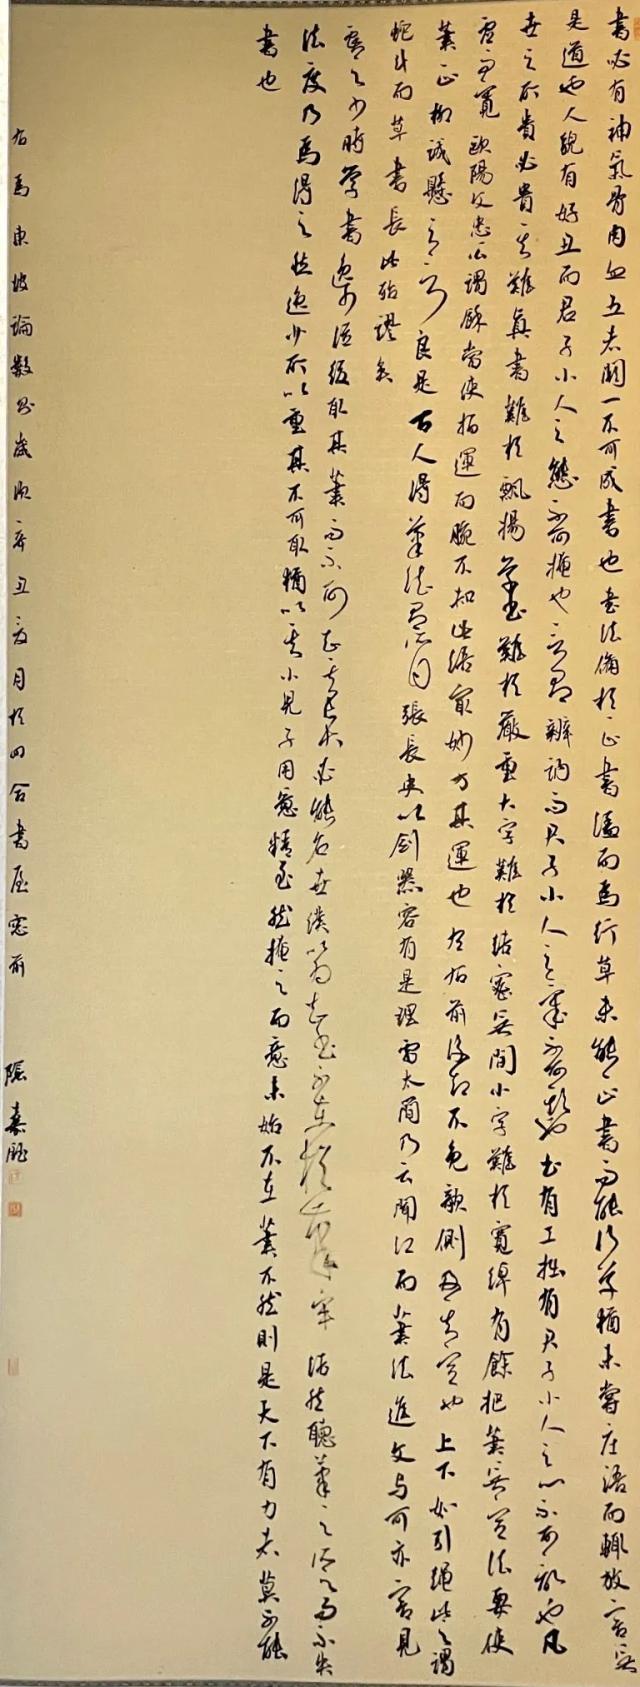 書必有神氣骨肉血五者闕一不可成書也書法備於正書溢而為行草未能正書而能行草猶未嘗庄語而輒放言無
是道也人貌有好丑而君子小人之態不可掩也言有辯訥而君子小人之氣不可欺也書有工拙有君子小人之心不可亂也凡
世之所貴必貴其難真書難於飄揚草書難於嚴重大字難於結密無間小字難於寬綽有餘把筆無定法要使
虛而寬歐陽文忠公謂餘當使指運而腕不知此語最妙方其運也左右前後却不免欹側及其定也上下如引繩此之謂
筆正柳誠懸之言良是古人得筆法有所自張長史以劍器容有是理雷太簡乃云聞江而筆法進文与可亦言見
蛇斗而草書長此殆謬矣
獻之少時學書逸少從後取其筆而不可知其長大必能名世僕以為知書不在於筆牢浩然聽筆之所之而不失
法度乃為得之然逸少所以重其不可取獨以其小兒子用意精至然掩之而意未始不在筆不然則是天下有力者莫不能
書也
右為東坡論數則歲次辛丑月於四合書屋窗前